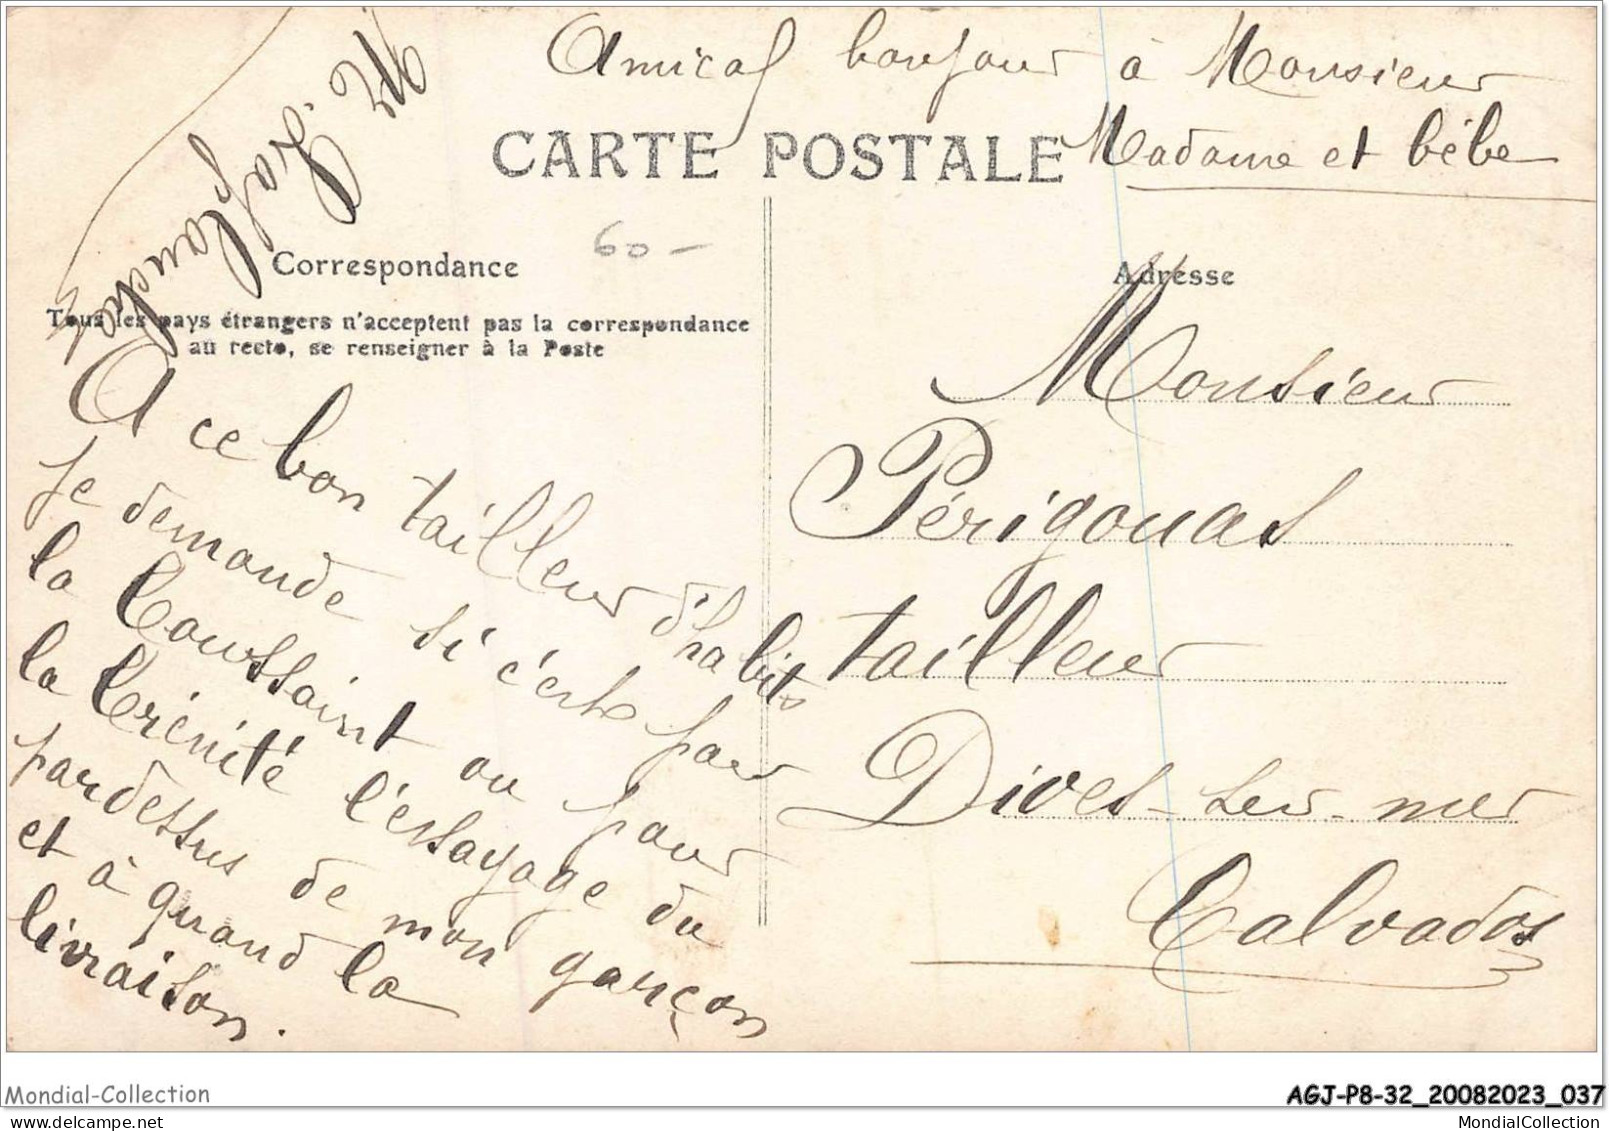 Amical bonjour à Monsieur
Madame et bébé
CARTE POSTALE
60 -
Correspondance
Tous les pays étrangers n'acceptent pas la correspondance
au recto, se renseigner à la Poste
A ce bon tailleur d'habits
je demande si c'est pour
la Toussaint ou pour
la Trénité l'essayage du
pardessus de mon garçon
et à quand la
livraison.
Adresse
Monsieur
Périgouas
tailleur
Dives-sur-mer
Calvados
Mondial-Collection
AGJ-P8-32_20082023_037
MondialCollection
delcampe.net